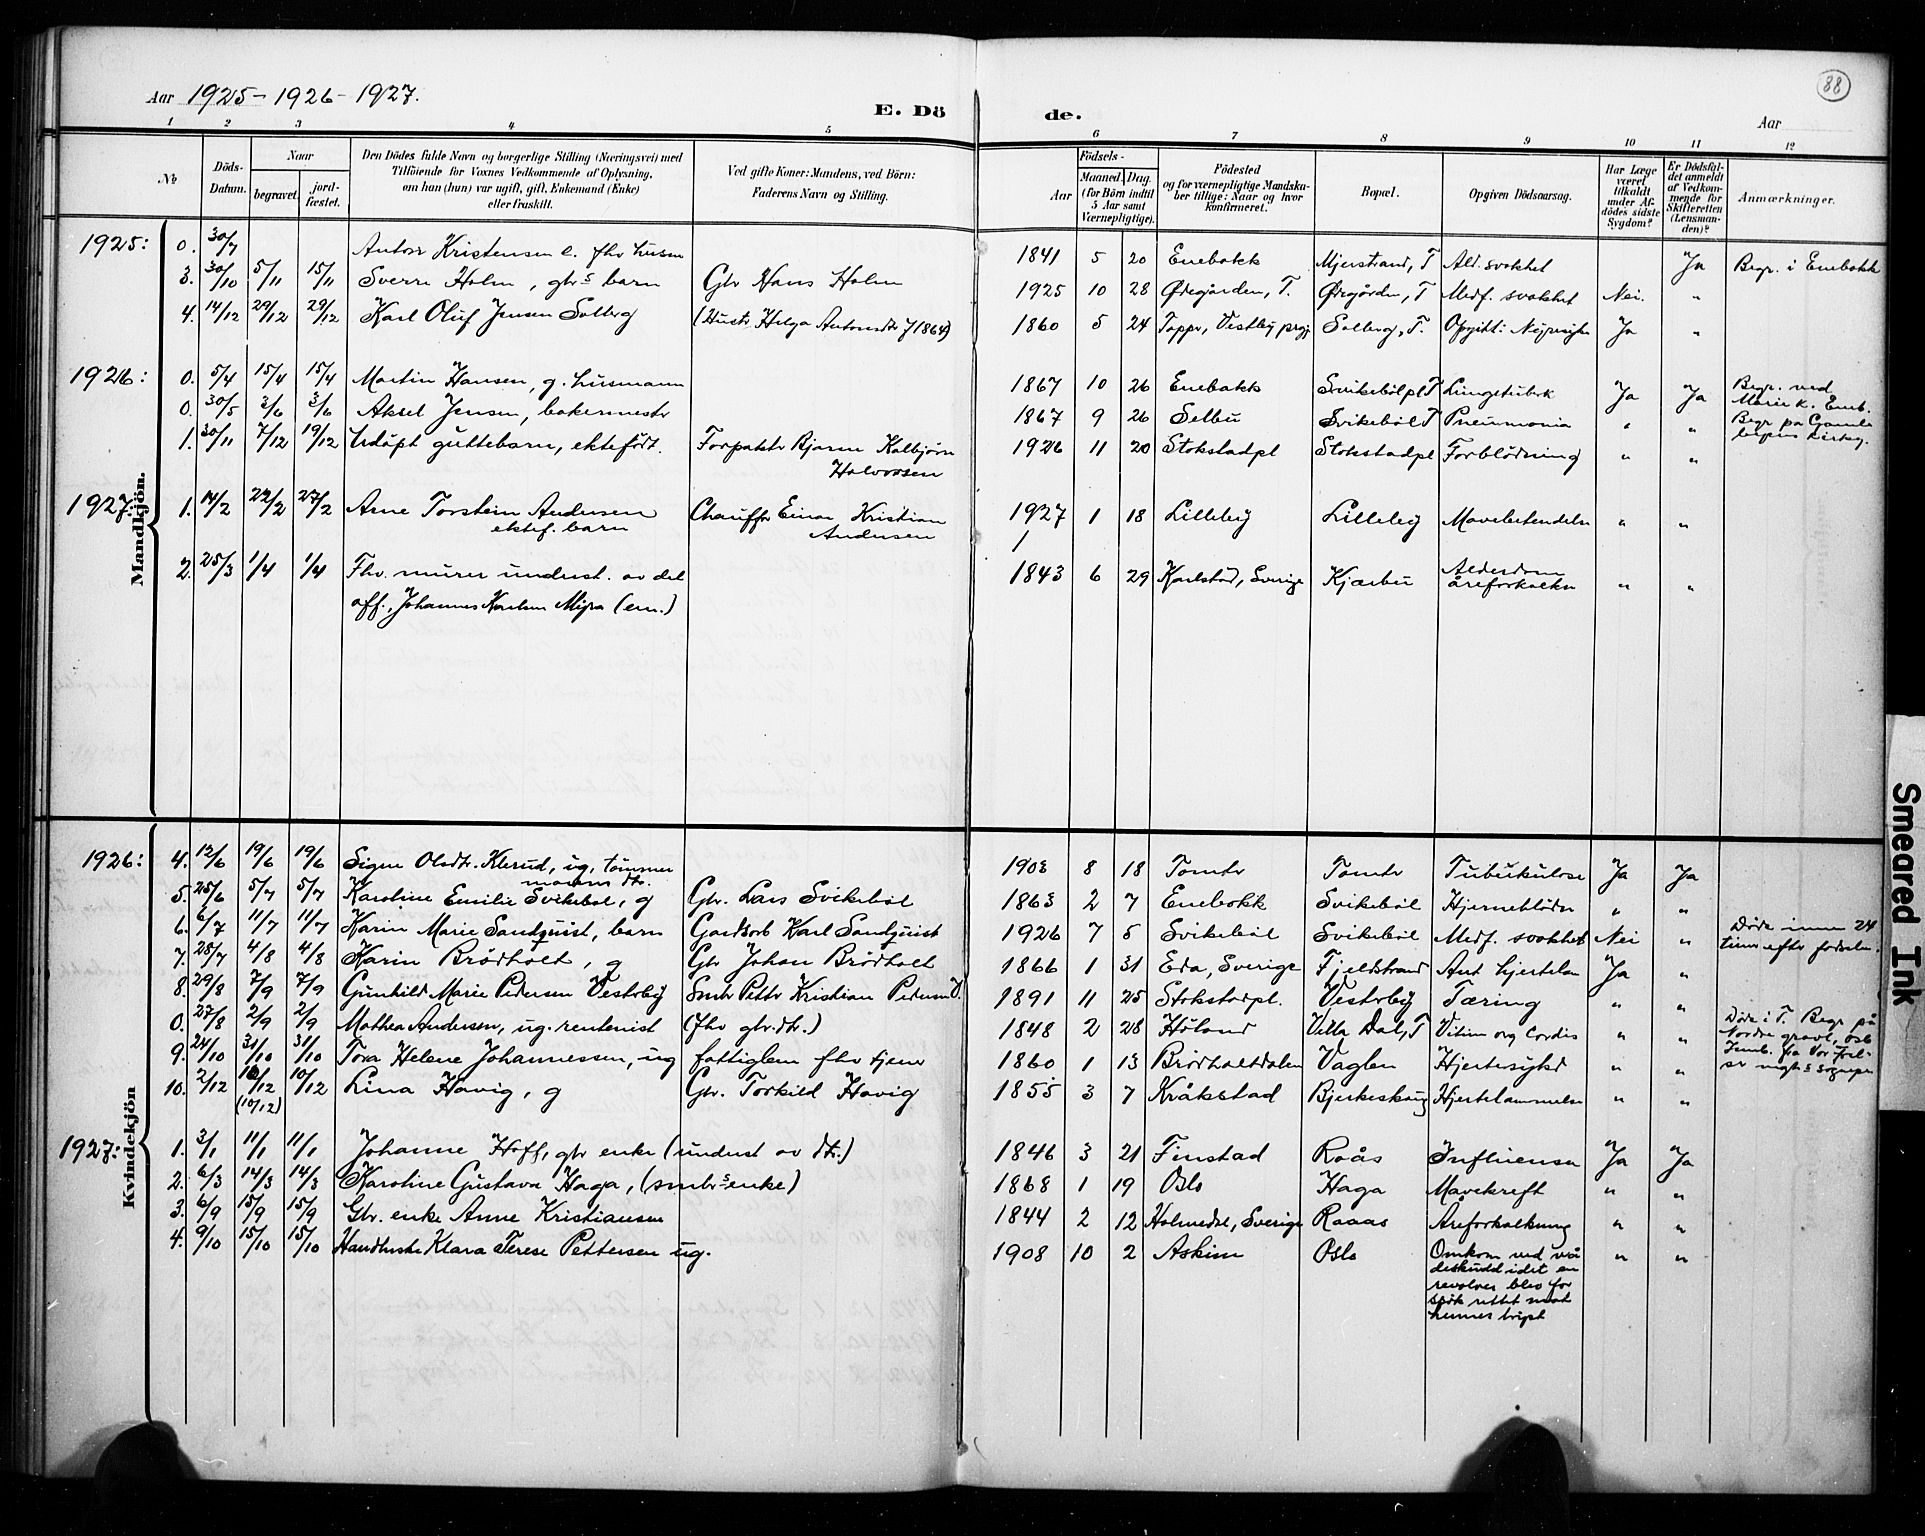 Aar 1925 - 1926 - 1927.
E. Dö
de.
Aar
88
1 2 3 4 5 6 7 8 9 10 11 12
No
Döds-
Datum.
Naar
begravet.
jord-
fæstet.
Den Dödes fulde Navn og borgerlige Stilling (Næringsvei) med
Tilföiende for Voxnes Vedkommende af Oplysning,
om han (hun) var ugift, gift, Enkemand (Enke)
eller fraskilt.
Ved gifte Koner: Mandens, ved Börn:
Faderens Navn og Stilling.
Födsels-
Aar
Maaned. Dag.
(for Börn indtil
5 Aar samt
Værnepligtige).
Födested
og for værnepligtige Mandska-
ber tillige: Naar og hvor
konfirmeret.
Bopæl.
Opgiven Dödsaarsag.
Har Læge
været
tilkaldt
under Af-
dödes sidste
Sygdom?
Er Dödsfal-
det anmeldt
af Vedkom-
mende for
Skifteretten
(Lensman-
den)?
Anmærkninger.
1925: 0. 30/7 Anton Kristensen e. fhv husm 1841 5 20 Enebakk Mjerstrand, T Ald. svakhet Ja Begr. i Enebakk
3. 30/10 5/11 15/11 Sverre Holm, gbrs barn Gbr Hans Holm 1925 10 28 Ødegården, T. Ødegården, T Medf. svakhet Nei. "
4. 14/12 29/12 29/12 Karl Oluf Jensen Solberg (Hustr Helga Antonsdtr f 1864) 1860 5 24 Toppr, Vestby prgj Solberg, T. Opgitt: Ja "
1926: 0. 5/4 15/4 15/4 Martin Hansen, g. husmann 1867 10 26 Enebakk Svikebøl pl T Lungetuberk Ja Ja Begr. ved
Marie k. Eneb.
0. 30/5 3/6 3/6 Aksel Jensen, bakermestr 1867 9 26 Selbu Svikebøl T Pneumonia " " Begr på Gamle
1. 30/11 7/12 19/12 Udöpt guttebarn, ektefödt. Forpaktr Bjarne Kolbjørn
Halvorsen 1926 11 20 Stokstadpl Stokstadpl Forblödning " "
1927: 1. 14/2 22/2 27/2 Arne Torstein Andersen
ektef. barn Chauffør Einar Kristian
Andersen 1927 1 18 Lilleby Lilleby Mavebetendelse " "
2. 25/3 1/4 1/4 Fhv. murer underst. av det
off., Johannes Karlsen Mijra (em.) 1843 6 29 Karlstad, Sverige Kjærbu Alderdom
åreforkalkn " "
Mandkjön.
1926: 4. 12/6 19/6 19/6 Signe Olsdtr. Klerud, ug, tömmer
manns dtr. 1903 8 18 Tomtr Tomtr Tuberkulose Ja Ja
5. 25/6 5/7 5/7 Karoline Emilie Svikebøl, g Gbr. Lars Svikebøl 1863 2 7 Enebakk Svikebøl Hjerneblödn " "
6. 6/7 11/7 11/7 Karin Marie Sandquist, barn Gardsarb Karl Sandquist 1926 7 5 Svikebøl Svikebøl Medf. svakhet Nei " Döde innen 24
timer efter födselen.
7. 28/7 4/8 4/8 Karin Brödholt, g Gbr Johan Brödholt 1866 1 31 Eda, Sverige Fjeldstrand Ja "
8. 29/8 7/9 7/9 Gunhild Marie Pedersen Vestreby Smbr Pettr Kristian Pedersen V. 1891 11 25 Stokstadpl. Vestreby Tæring " "
0. 27/8 2/9 2/9 Mathea Andersen, ug. rentenist (fhv gbr. dtr.) 1848 2 28 Höland Villa Dal, T Vitium org Cordis " " Döde i T. Begr på
Nordre gravl, Oslo
9. 24/10 31/10 31/10 Tora Helene Johannessen, ug fattiglem fhv tjener 1860 1 13 Brödholtdalen Vaglen Hjertesykd " "
10. 2/12 10/12 10/12 Lina Havig, g Gbr. Torkild Havig 1855 3 7 Kråkstad Bjerkeskaug Hjertelammelse " "
(10/12)
1927: 1. 3/1 11/1 11/1 Johanne Hoff, gbr enke (underst av dtr.) 1846 3 21 Finstad Raås Influensa Ja Ja
2. 6/3 14/3 14/3 Karoline Gustava Haga, (smbrs enke) 1868 1 19 Oslo Haga Mavekreft " "
3. 6/9 15/9 15/9 Gbr. enke Anne Kristiansen 1844 2 12 Holmedal, Sverige Raaas Åreforkalkning " "
4. 9/10 15/10 15/10 Klara Terese Pettersen ug. 1908 10 2 Askim Oslo Omkom ved vå
deskudd idet en
revolver blev for
spök rettet mot
hennes bryst " "
Kvindekjön
Smeared Ink